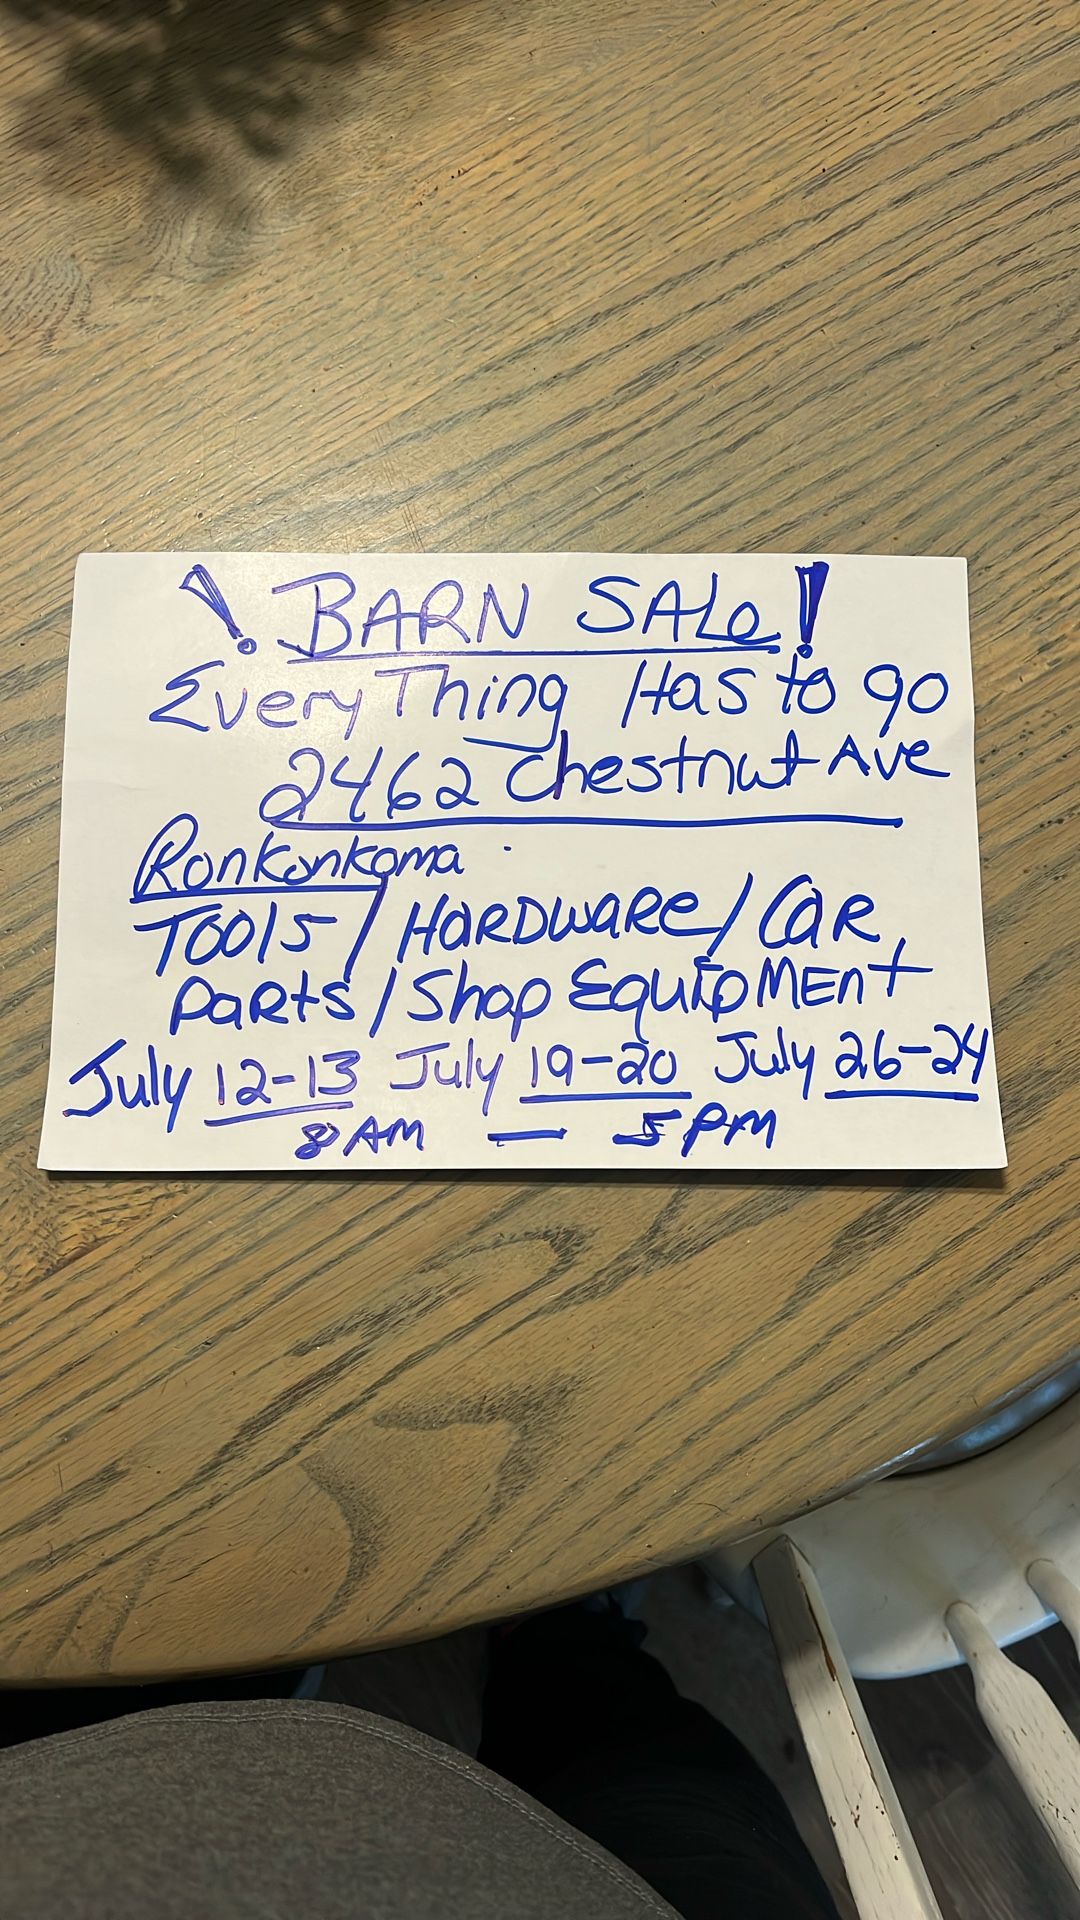 ! BARN SALe!
EveryThing Has to go
2462 Chestnut Ave
Ronkonkoma
TOOls / HaRDWaRe / CaR
PaRts / Shop EquipMEnt
July 12-13 July 19-20 July 26-24
8 AM — 5 PM